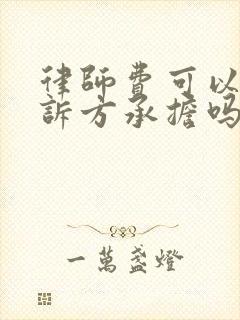 律師費可以
訴方承擔吗
一萬盞燈